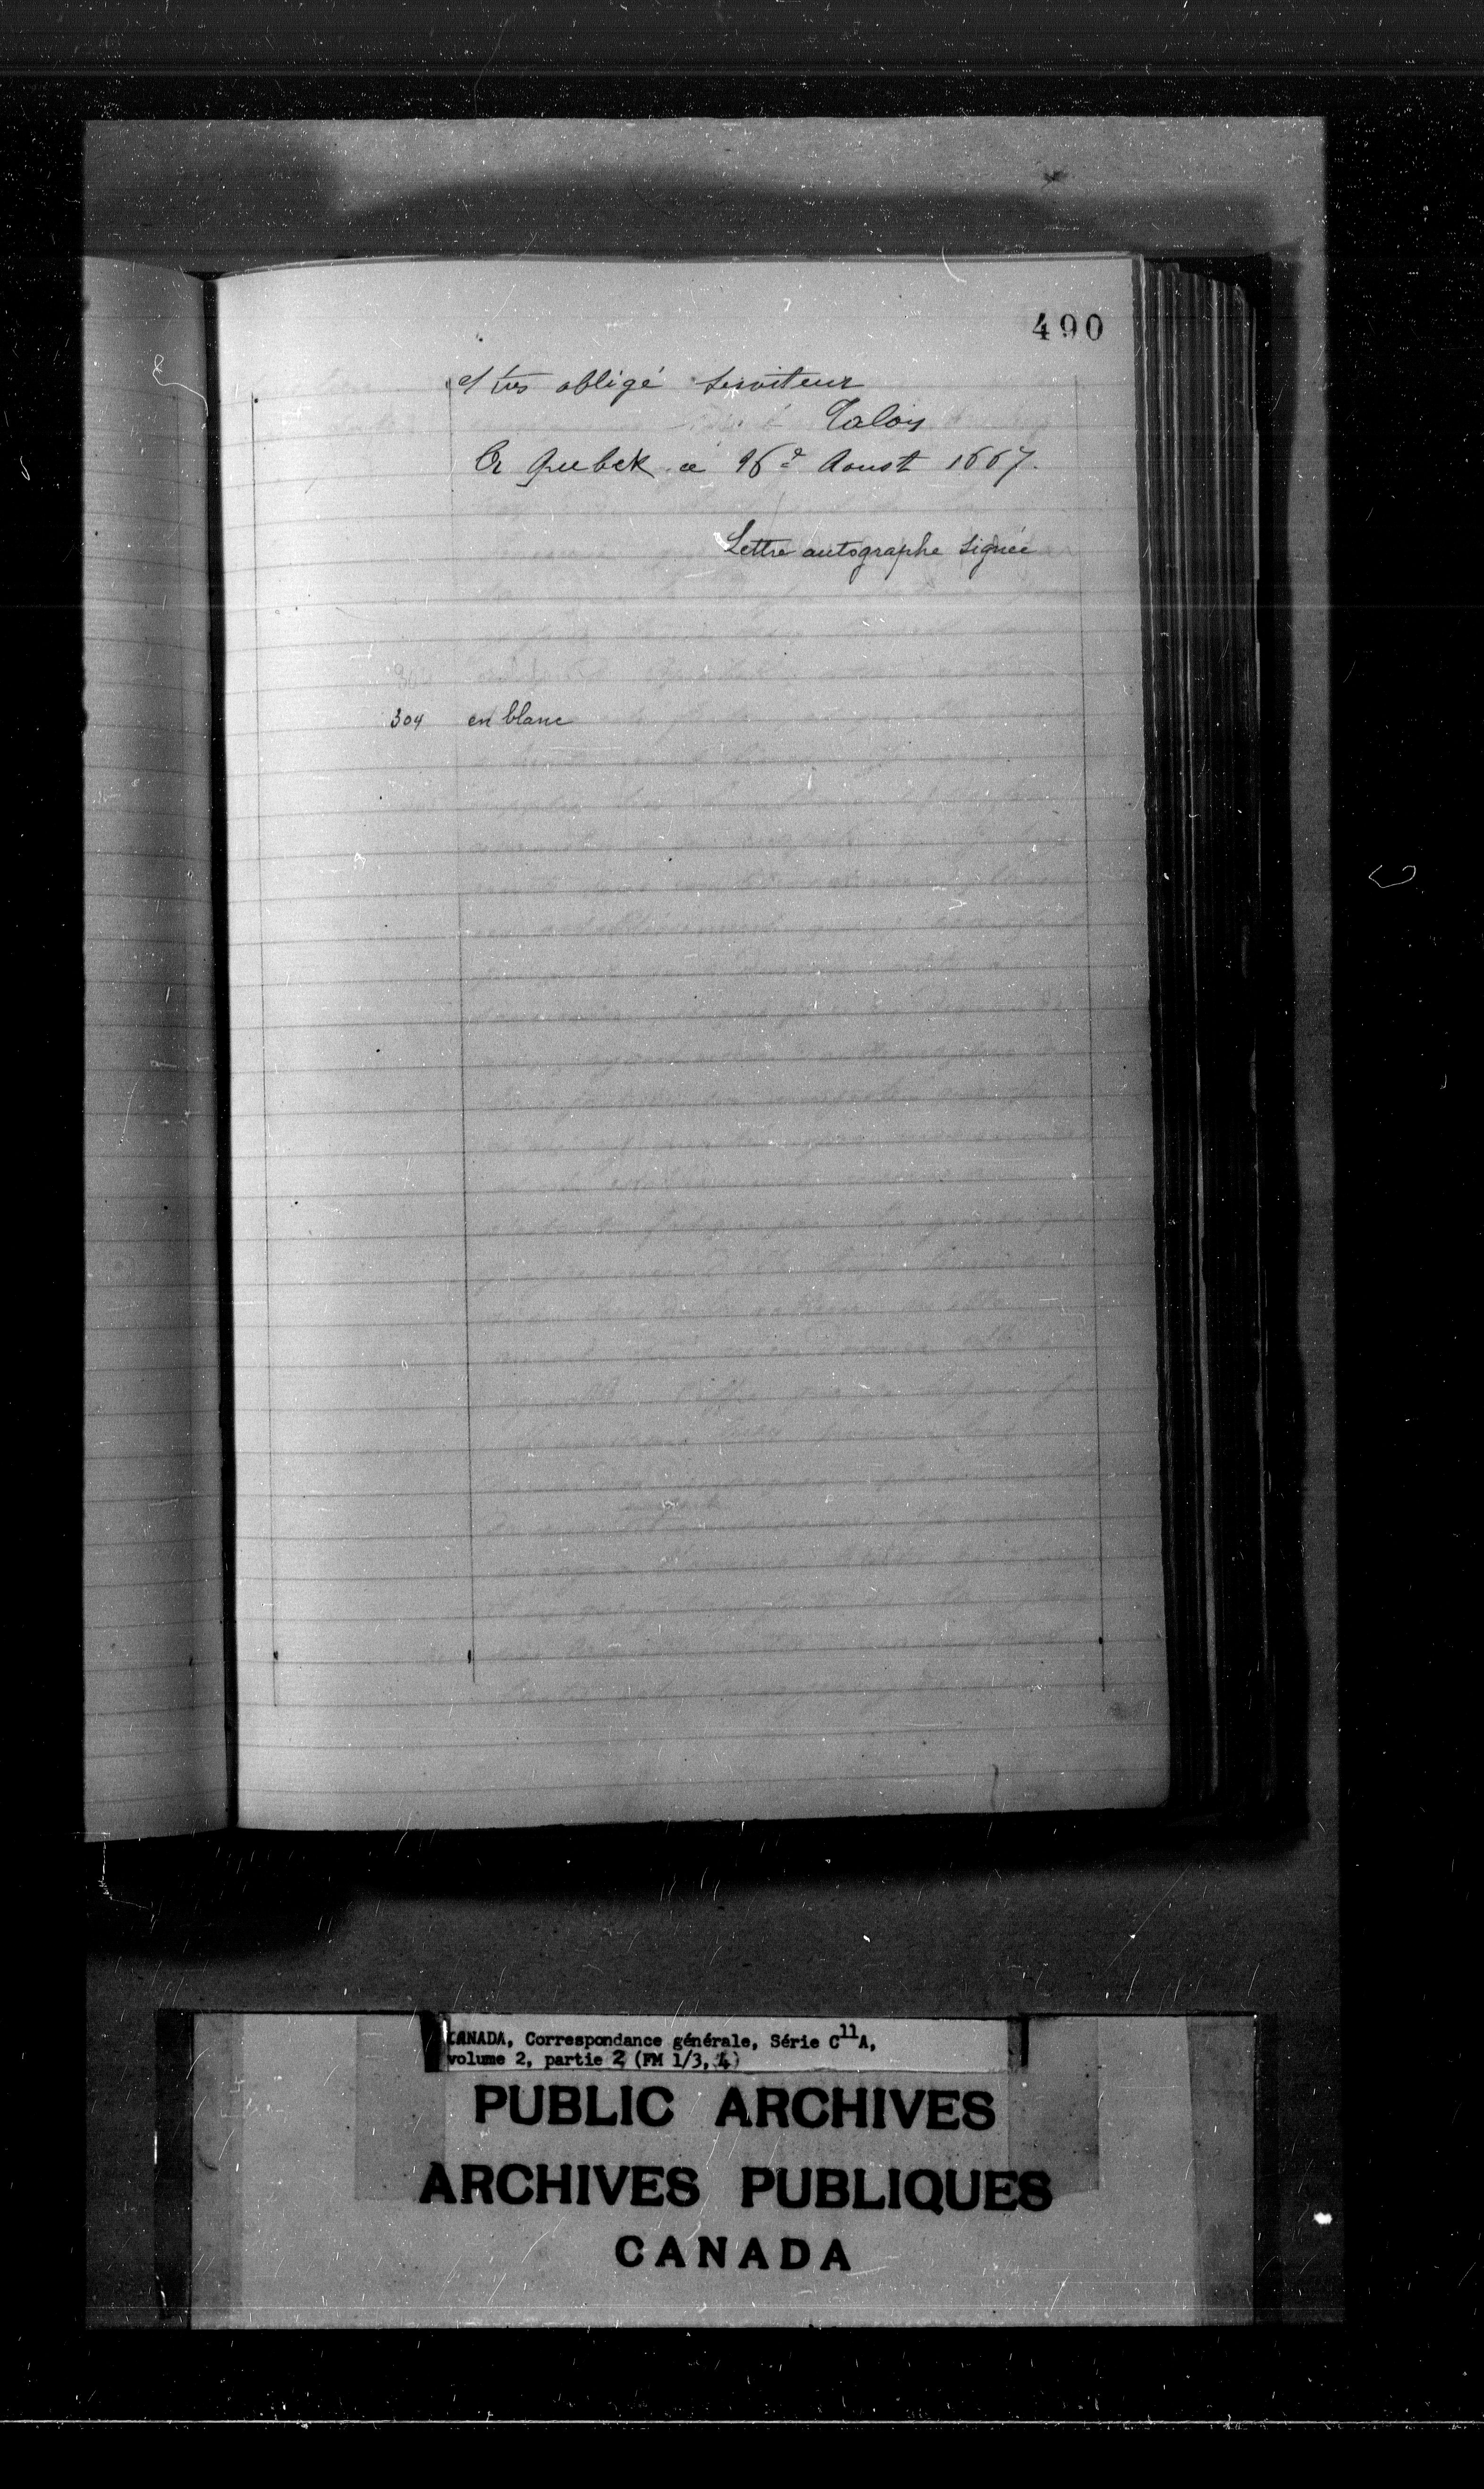 490
& très obligé serviteur
Talon
A Quebek ce 26e Aoust 1667.
Lettre autographe signée
304 en blanc
CANADA, Correspondance générale, Série C11A,
volume 2, partie 2 (FM 1/3, 4)
PUBLIC ARCHIVES
ARCHIVES PUBLIQUES
CANADA